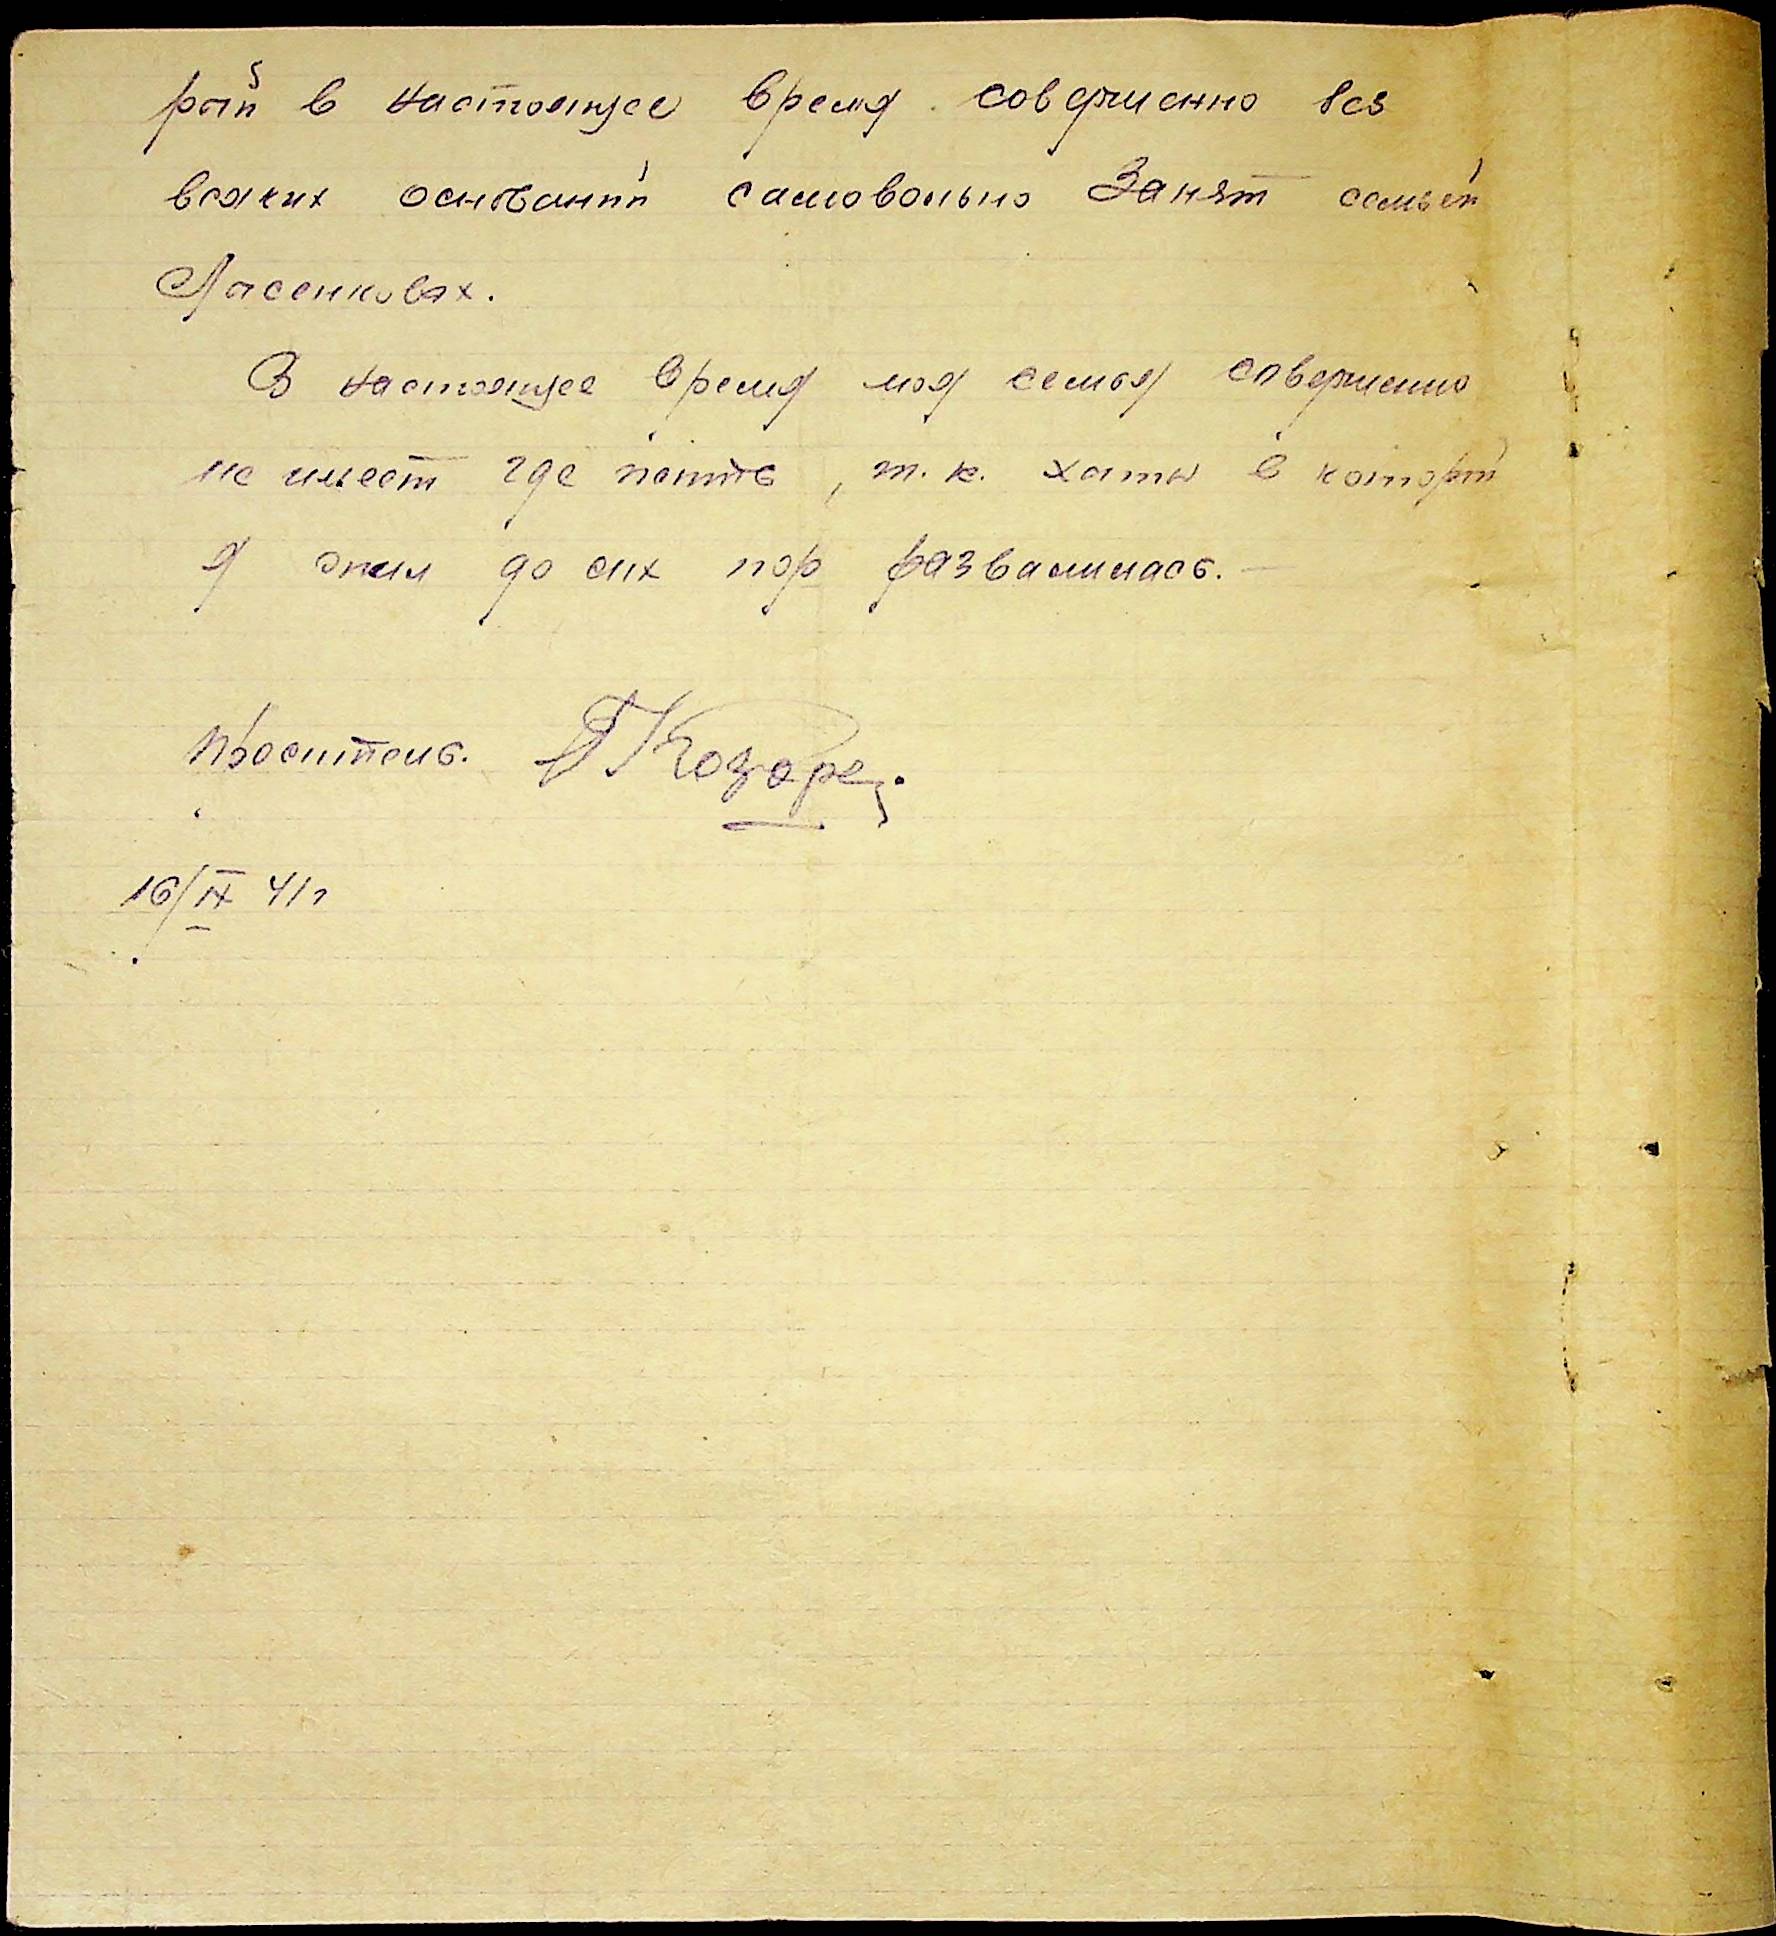 рой в настоящее время совершенно без
всяких оснований самовольно занят семьей
Ласенковых.
В настоящее время моя семья совершенно
не имеет где жить, т. к. хаты в которой
я жил до сих пор развалилась. —
Проситель. Козорец.
16/IX 41г